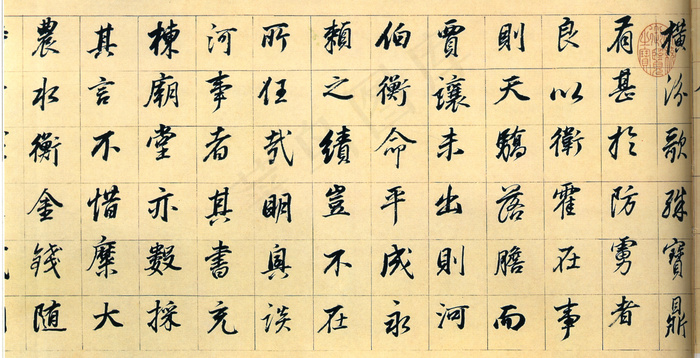 橫汾歌殊寶鼎
有甚於防虜者
良以衛霍在事
則天驕落膽而
賈讓未出則河
伯衡命平成永
賴之績豈不在
所任哉明興談
河事者其書充
棟廟堂亦數採
其言不惜糜大
農水衡金錢随